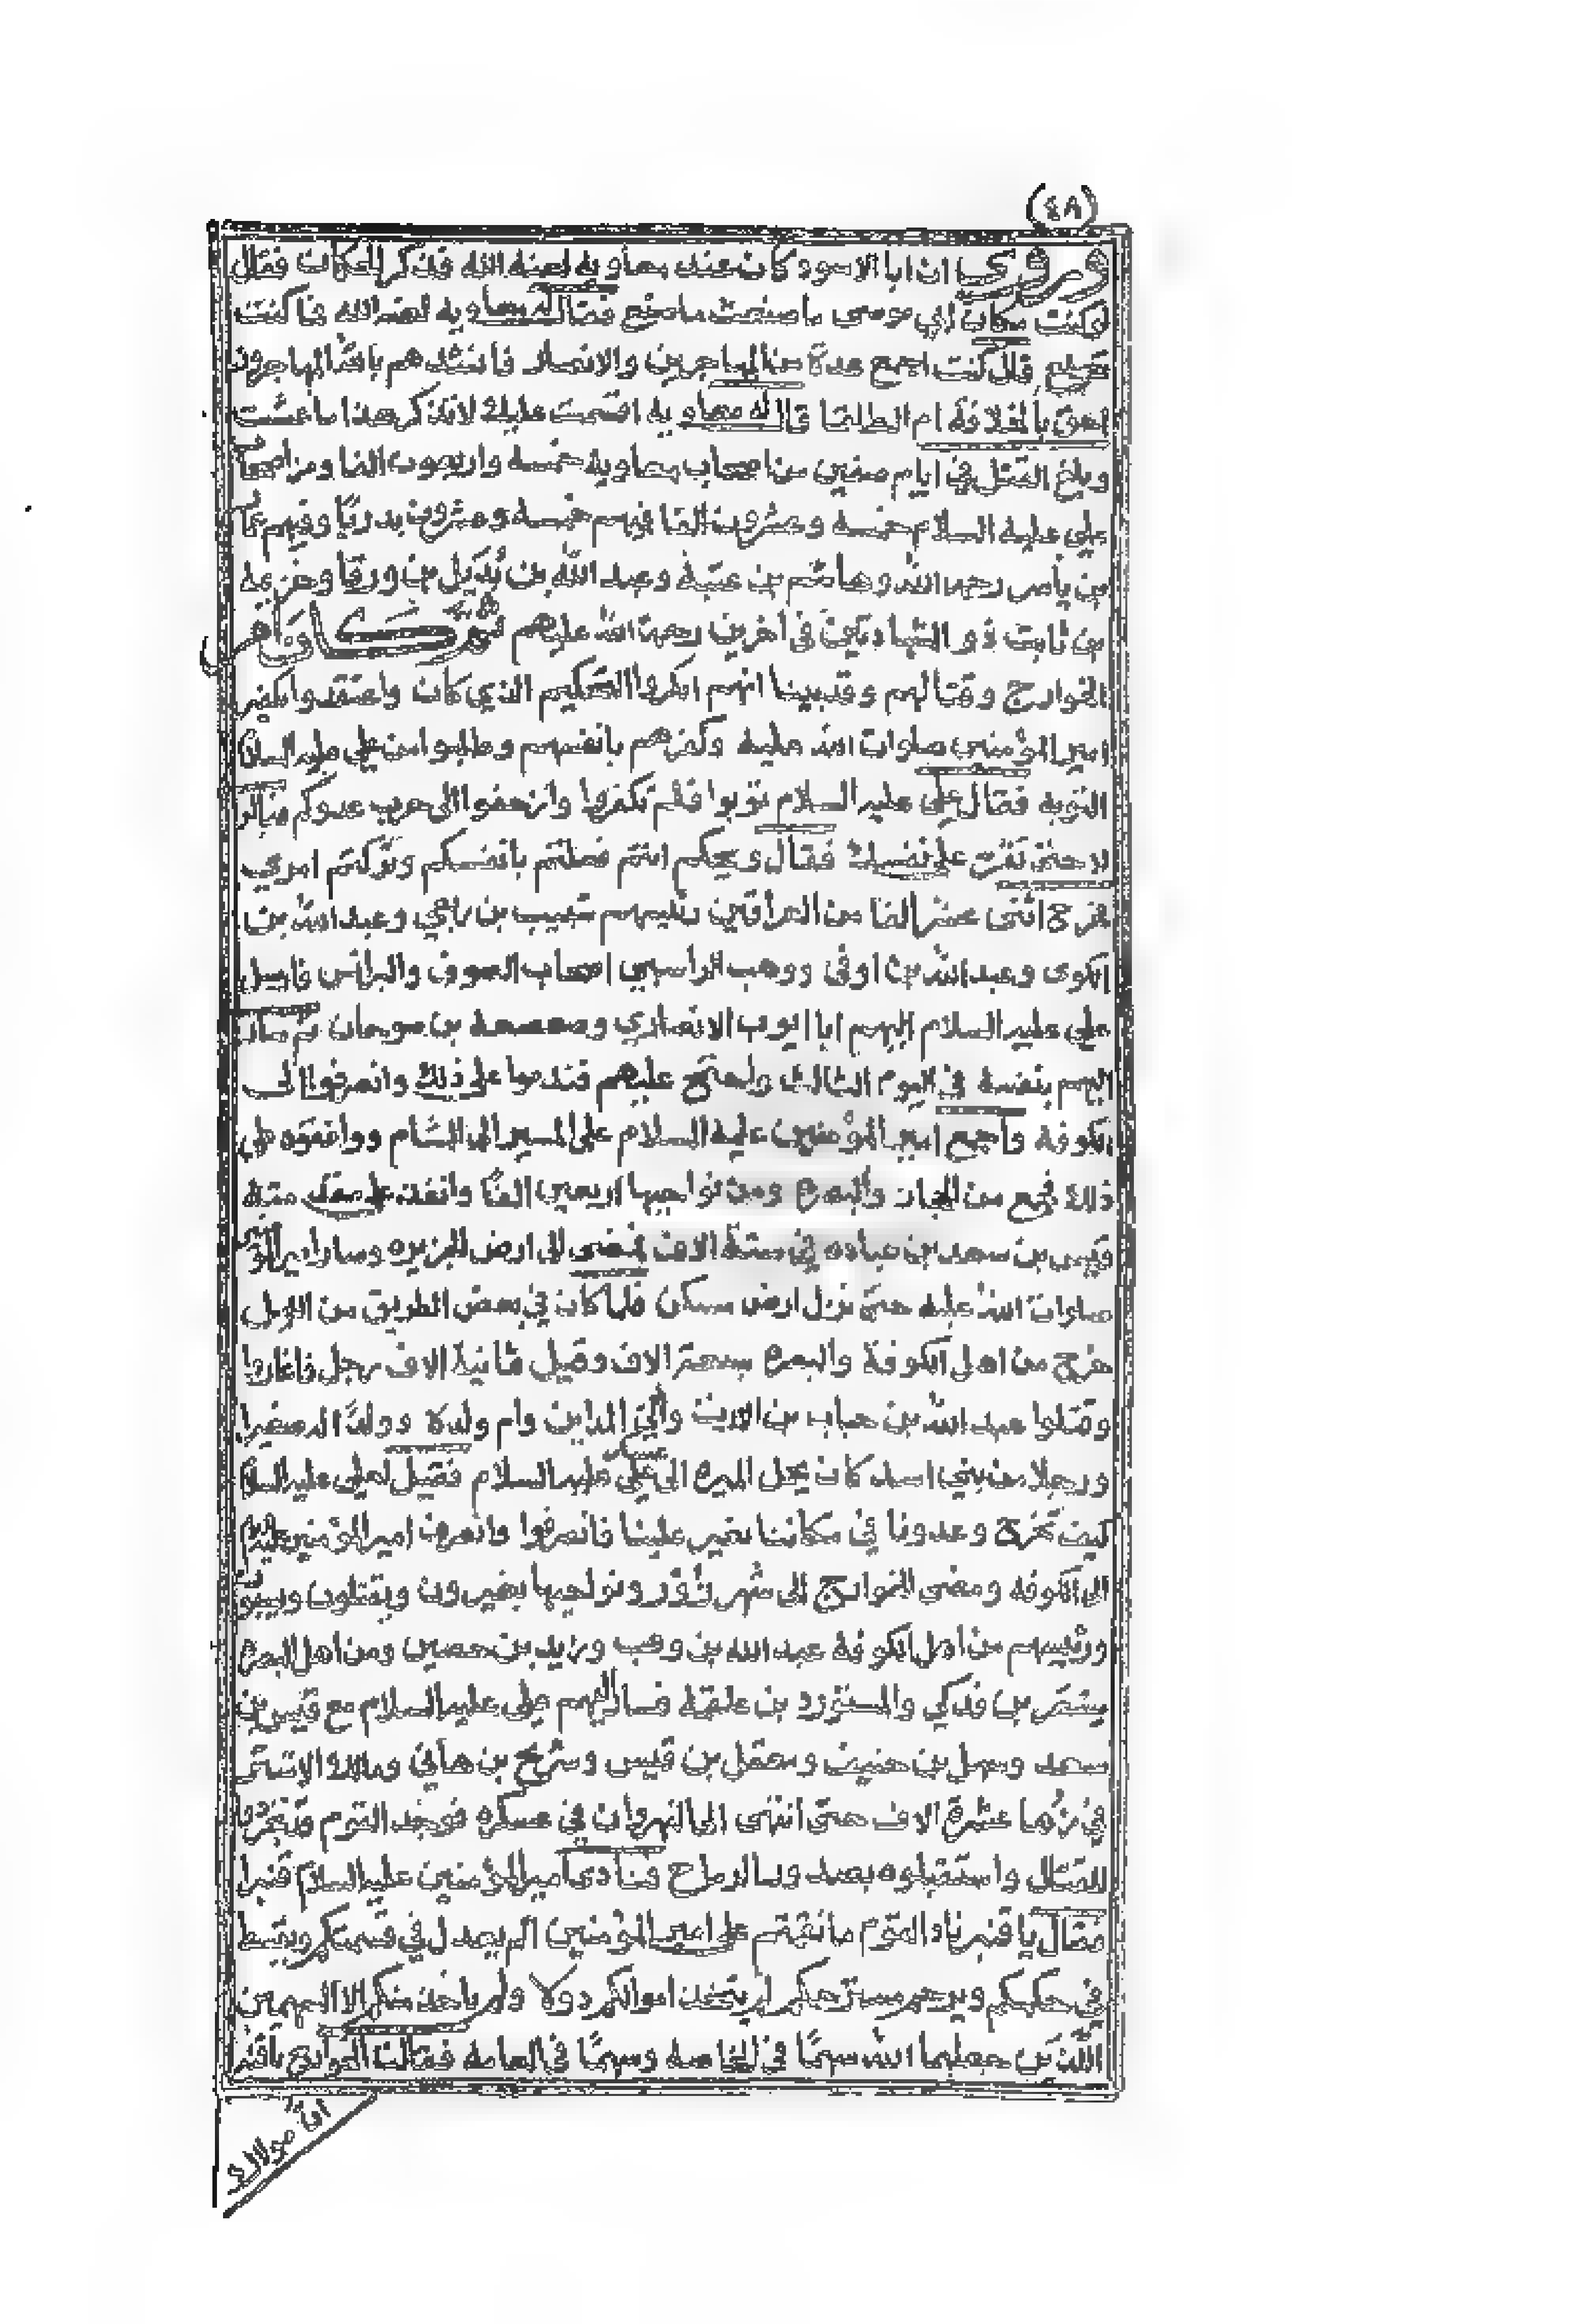 (٤٨)
وروي ان ابا الاسود كان عند معاوية لعنه الله فذكر الحكمان فقال
لو كنت مكان ابي موسى ما صنعت ما صنع فقال له معاوية لعنه الله فما كنت
تصنع قال كنت اجمع عدة من المهاجرين والانصار فانشدهم بالله المهاجرون
احق بالخلافة ام الطلقا قال له معاويه اقسمت عليك لا تذكر هذا ما عشت
وبلغ القتل في ايام صفين من اصحاب معاوية خمسه واربعون الفا ومن اصحاب
علي عليه السلام خمسه وعشرون الفا فيهم خمسه وعشرون بدريا وفيهم عمار
بن ياسر رحمه الله وهاشم بن عتبة وعبد الله بن بديل بن ورقا وخزيمة
بن ثابت ذو الشهادتين في اخرين رحمة الله عليهم ثم كان امر
الخوارج وقتالهم وقد بينا انهم انكروا التحكيم الذي كان واعتقدوا كفر
امير المؤمنين صلوات الله عليه وكفرهم بانفسهم وطلبوا من علي عليه السلام
التوبه فقال علي عليه السلام توبوا فلم تكفروا وازحفوا الى حرب عدوكم فقالوا
لا حتى تقر على نفسك فقال ويحكم انتم فعلتم بانفسكم وتركتم امري
فخرج اثني عشر الفا من العراقين رئيسهم شبيب بن راجي وعبد الله بن
الكوى وعبد الله بن اوفى ووهب الراسبي اصحاب الصوف والبرانس فارسل
علي عليه السلام اليهم ابا ايوب الانصاري وصعصعة بن صوحان ثم صار
اليهم بنفسه في اليوم الثالث واحتج عليهم فندموا على ذلك وانصرفوا الى
الكوفة واجمع امير المؤمنين عليه السلام على المسير الى الشام ووافقوه على
ذلك فجمع من الحجاز والبصرة ومن نواحيها اربعين الفا وانفذ على مقدمته
قيس بن سعد بن عباده في ستة الاف فمضى الى ارض الجزيره وسار امير المؤمنين
صلوات الله عليه حتى نزل ارض مسكن فلما كان في بعض الطريق من الليل
خرج من اهل الكوفة والبصرة سبعة الاف وقيل ثمانية الاف رجل فاغاروا
وقتلوا عبد الله بن خباب بن الارت والي المداين وام ولده وولدا له صغيرا
ورجلا من بني اسد كان يحمل الميرة الى عسكر علي عليه السلام فقيل لعلي عليه السلام
كيف نخرج وعدونا في مكاننا يغير علينا فانصرفوا وانصرف امير المؤمنين عليه السلام
الى الكوفه ومضى الخوارج الى شهرزور ونواحيها يغيرون ويقتلون ويسبون
ورئيسهم من اهل الكوفة عبد الله بن وهب وزيد بن حصين ومن اهل البصرة
مسعر بن فدكي والمستورد بن علقمة فسار اليهم علي عليه السلام مع قيس بن
سعد وسهل بن حنيف ومعقل بن قيس وشريح بن هاني ومالك الاشتر
في زها عشرة الاف حتى انتهى الى النهروان في عسكره فوجد القوم قد نحروا
القتال واستقبلوه بصدور الرماح فنادى امير المؤمنين عليه السلام قنبرا
فقال يا قنبر ناد القوم ما نقمتم على امير المؤمنين الم يعدل في قسمتكم ويقسط
في حكمكم ويرحم مسترحمكم لم يتخذ اموالكم دولا ولم ياخذ منكم الا السهمين
اللذين جعلهما الله سهما في الخاصه وسهما في العامه فقالت الخوارج يا قنبر
ان مولاك